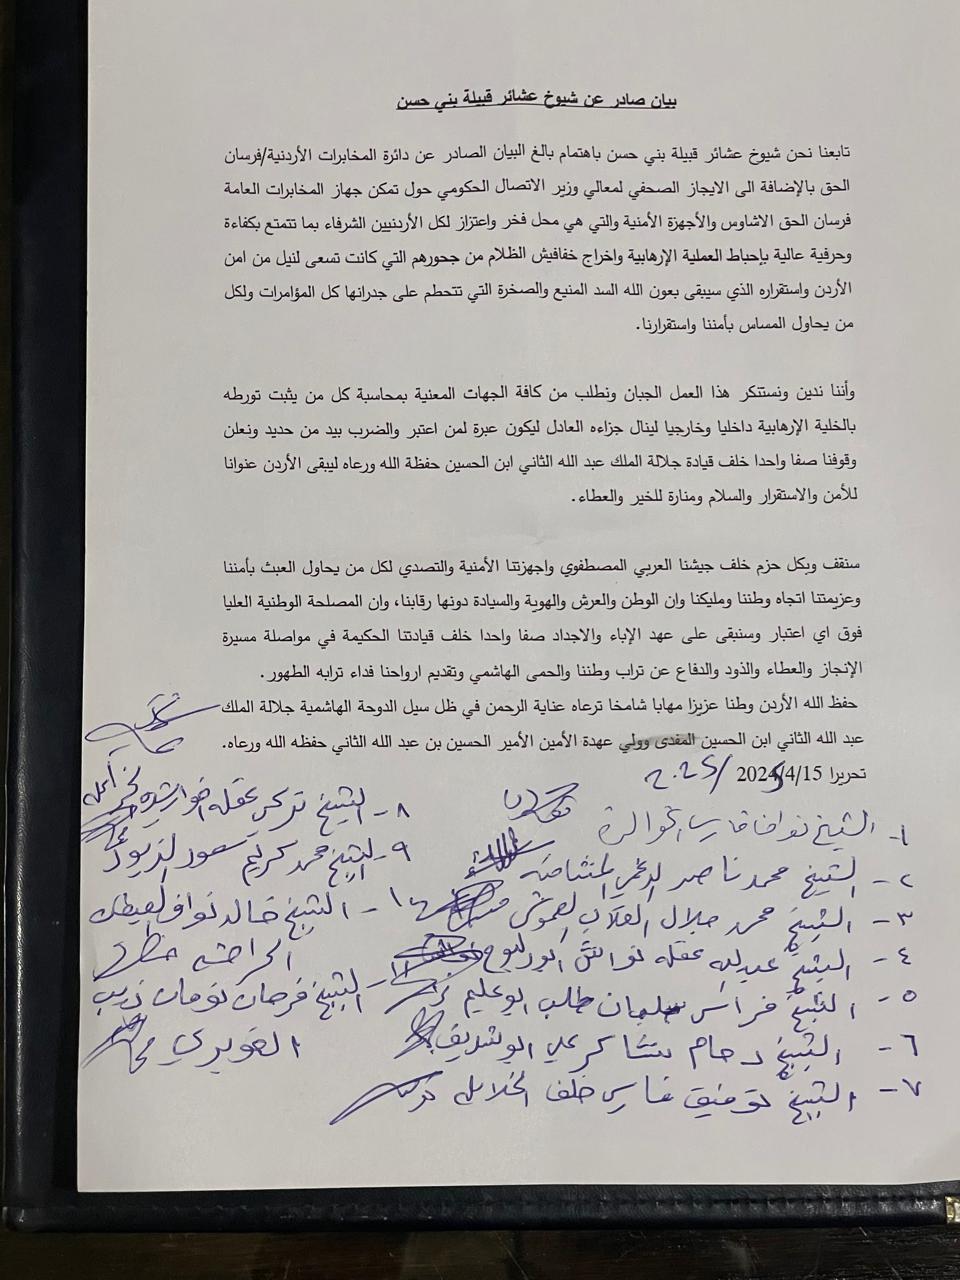 بيان صادر عن شيوخ عشائر قبيلة بني حسن
تابعنا نحن شيوخ عشائر قبيلة بني حسن باهتمام بالغ البيان الصادر عن دائرة المخابرات الأردنية/فرسان
الحق بالإضافة الى الايجاز الصحفي لمعالي وزير الاتصال الحكومي حول تمكن جهاز المخابرات العامة
فرسان الحق الاشاوس والأجهزة الأمنية والتي هي محل فخر واعتزاز لكل الأردنيين الشرفاء بما تتمتع بكفاءة
وحرفية عالية بإحباط العملية الإرهابية واخراج خفافيش الظلام من جحورهم التي كانت تسعى لنيل من امن
الأردن واستقراره الذي سيبقى بعون الله السد المنيع والصخرة التي تتحطم على جدرانها كل المؤامرات ولكل
من يحاول المساس بأمننا واستقرارنا.
وأننا ندين ونستنكر هذا العمل الجبان ونطلب من كافة الجهات المعنية بمحاسبة كل من يثبت تورطه
بالخلية الإرهابية داخليا وخارجيا لينال جزاءه العادل ليكون عبرة لمن اعتبر والضرب بيد من حديد ونعلن
وقوفنا صفا واحدا خلف قيادة جلالة الملك عبد الله الثاني ابن الحسين حفظة الله ورعاه ليبقى الأردن عنوانا
للأمن والاستقرار والسلام ومنارة للخير والعطاء.
سنقف وبكل حزم خلف جيشنا العربي المصطفوي واجهزتنا الأمنية والتصدي لكل من يحاول العبث بأمننا
وعزيمتنا اتجاه وطننا ومليكنا وان الوطن والعرش والهوية والسيادة دونها رقابنا، وان المصلحة الوطنية العليا
فوق اي اعتبار وسنبقى على عهد الإباء والاجداد صفا واحدا خلف قيادتنا الحكيمة في مواصلة مسيرة
الإنجاز والعطاء والذود والدفاع عن تراب وطننا والحمى الهاشمي وتقديم ارواحنا فداء ترابه الطهور.
حفظ الله الأردن وطنا عزيزا مهابا شامخا ترعاه عناية الرحمن في ظل سيل الدوحة الهاشمية جلالة الملك
عبد الله الثاني ابن الحسين المفدى وولي عهدة الأمين الأمير الحسين بن عبد الله الثاني حفظه الله ورعاه.
تحريرا 2025/4/15 2025/
١- الشيخ نواف فارس الخوالدة
٢- الشيخ محمد ناصر
٣- الشيخ محمد جلال العموش
٤- الشيخ عبدالله عقله
٥- الشيخ فراس سليمان طلب ابو عليم
٦- الشيخ دحام شاكر علي ابو شديف
٧- الشيخ توفيق فارس خلف الخلايله
٨- الشيخ تركي عقله
٩- الشيخ محمد كريم سعود الزيود
١٠- الشيخ خالد نواف العيطان
الحراحشه
١١- الشيخ فرحان نومان
الغويري